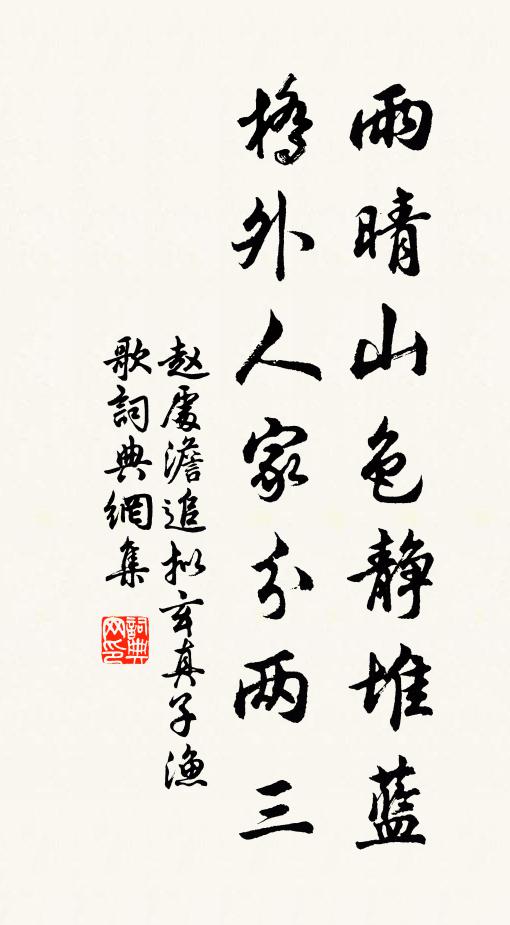 雨晴山色静堆藍
橋外人家分两三
赵處澹追拟玄真子漁
歌詞典網集
詞典
网印